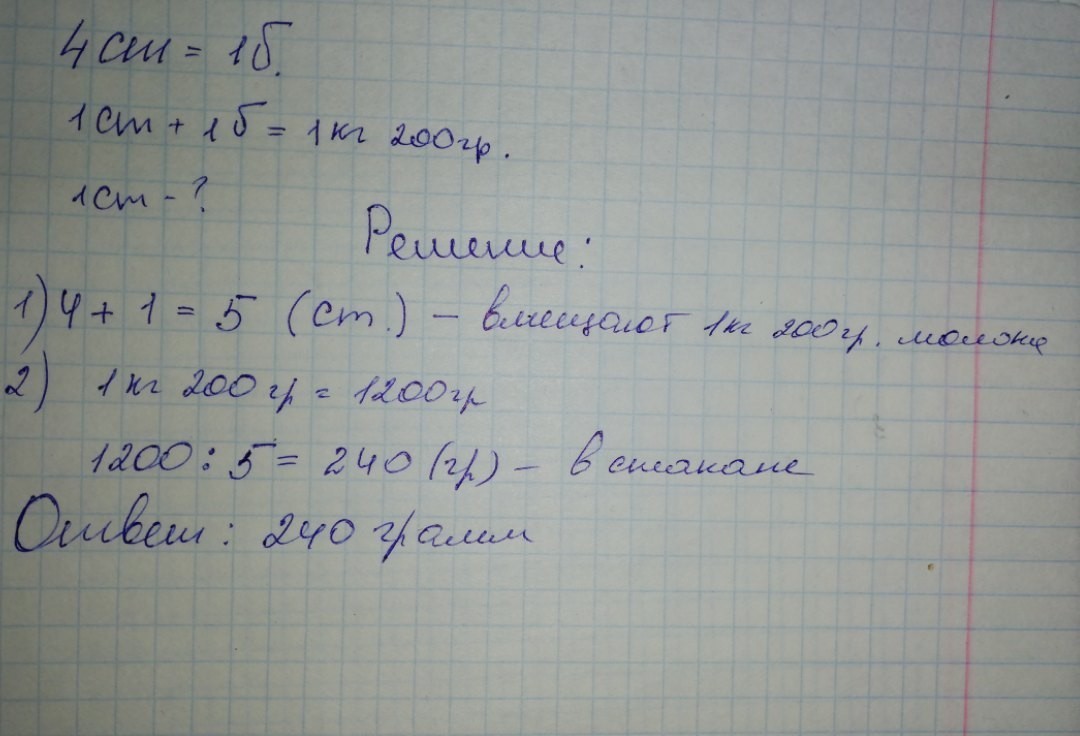 4 ст = 1 б.
1 ст + 1 б = 1 кг 200 гр.
1 ст - ?
Решение:
1) 4 + 1 = 5 (ст.) – вмещают 1 кг 200 гр. молока
2) 1 кг 200 гр = 1200 гр
1200 : 5 = 240 (гр) – в стакане
Ответ: 240 грамм